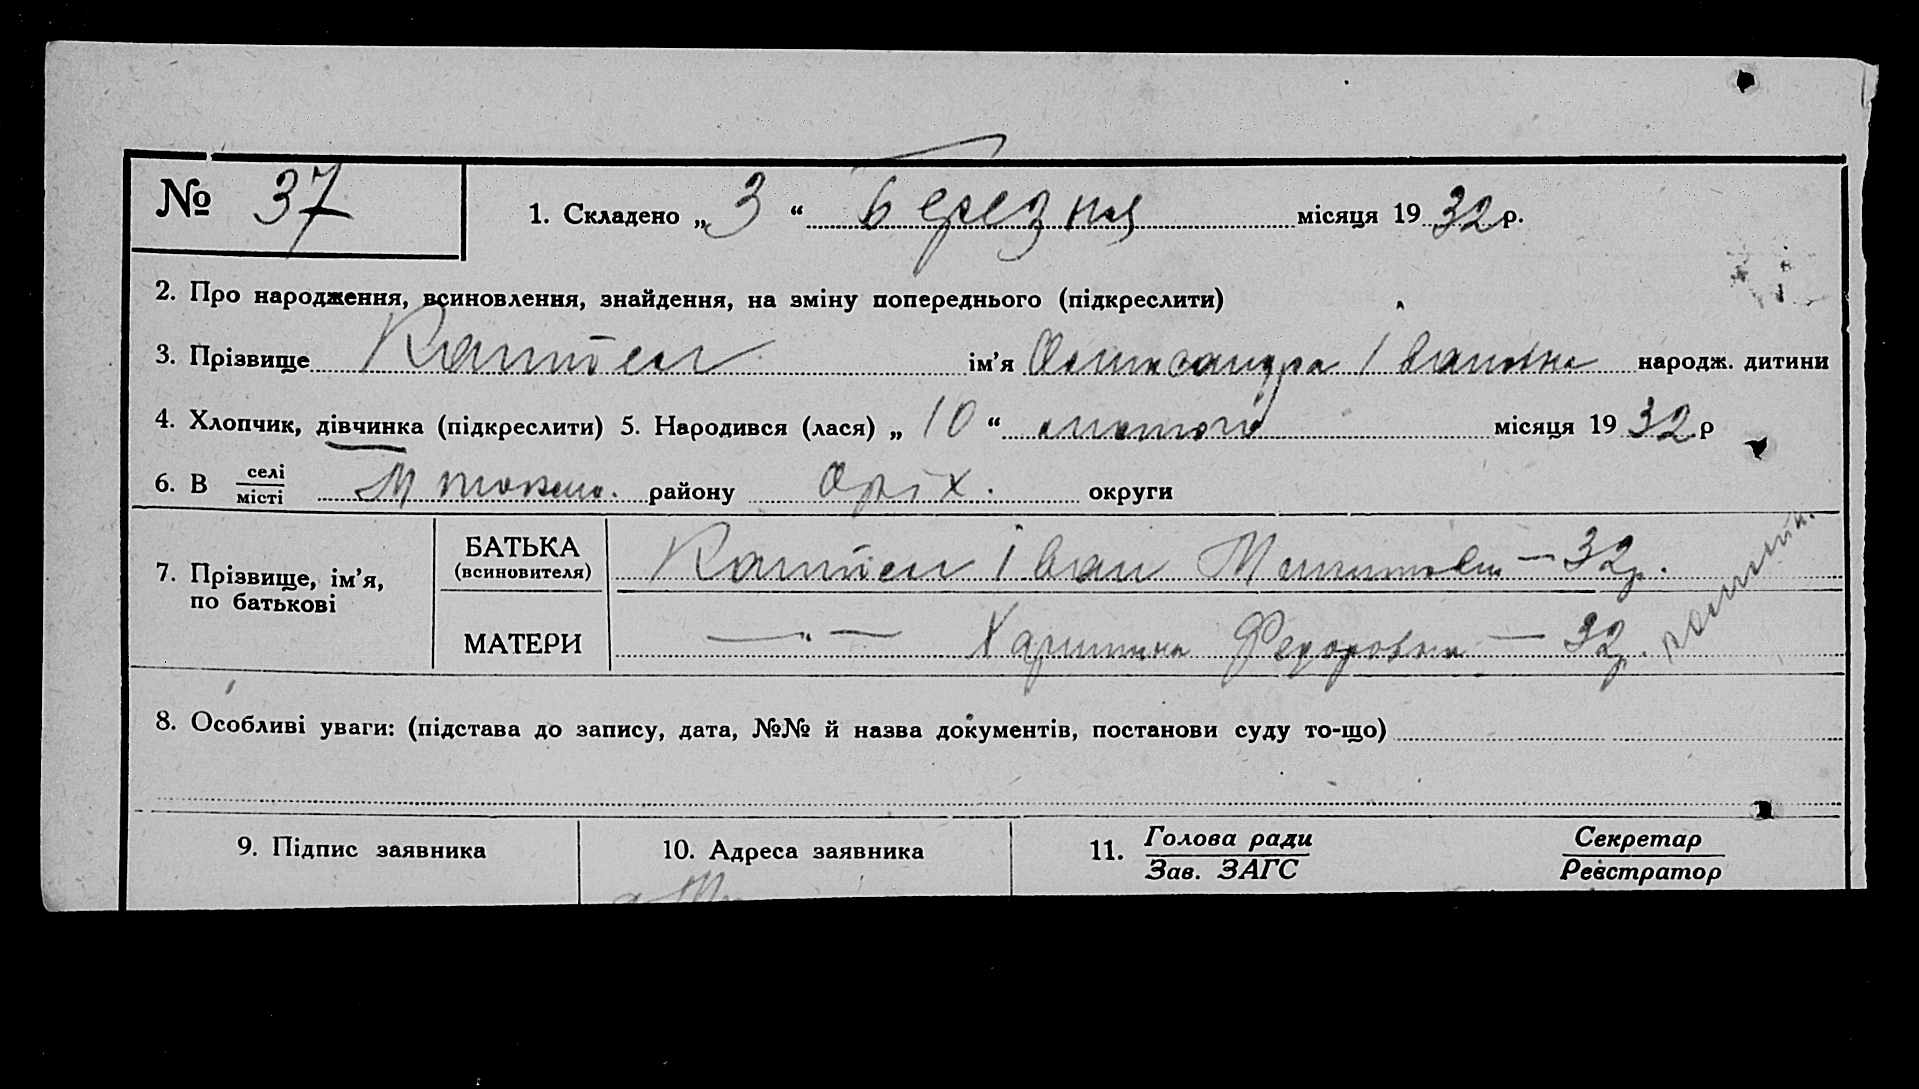 № 37
1. Складено „ 3 “ Березня місяця 1932 р.
2. Про народження, всиновлення, знайдення, на зміну попереднього (підкреслити)
3. Прізвище ім’я Олександра Іванівна народж. дитини
4. Хлопчик, дівчинка (підкреслити) 5. Народився (лася) „ 10 “ лютого місяця 1932 р
6. В селі місті району Оріх. округи
7. Прізвище, ім’я, по батькові
БАТЬКА (всиновителя) Іван — 32 р.
МАТЕРИ —〃— Харитина Федоровна — 32 р.
8. Особливі уваги: (підстава до запису, дата, №№ й назва документів, постанови суду то-що)
9. Підпис заявника
10. Адреса заявника
11. Голова ради Зав. ЗАГС
Секретар Реєстратор